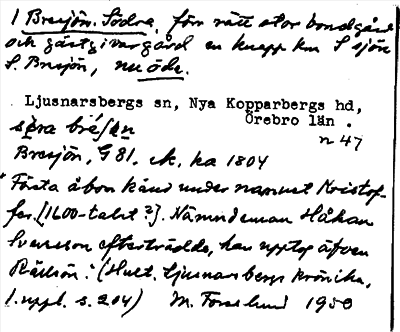 1 Bresjön. Södra, förr rätt stor bondgård
och gästgivargård en knapp km S sjön
S. Bresjön, nu öde.
Ljusnarsbergs sn, Nya Kopparbergs hd,
Örebro län.
söra bré/ʃɵn
n 47
Bresjön, G 81, ek. ka 1804
"Första åbon känd under namnet Kristof-
fer. [1600-talet?]. Nämndeman Håkan
Svensson efterträdde, han upptog äfven
Rällsön." (Hult. Ljusnarsbergs krönika,
1. uppl. s. 204) M. Forslund 1950